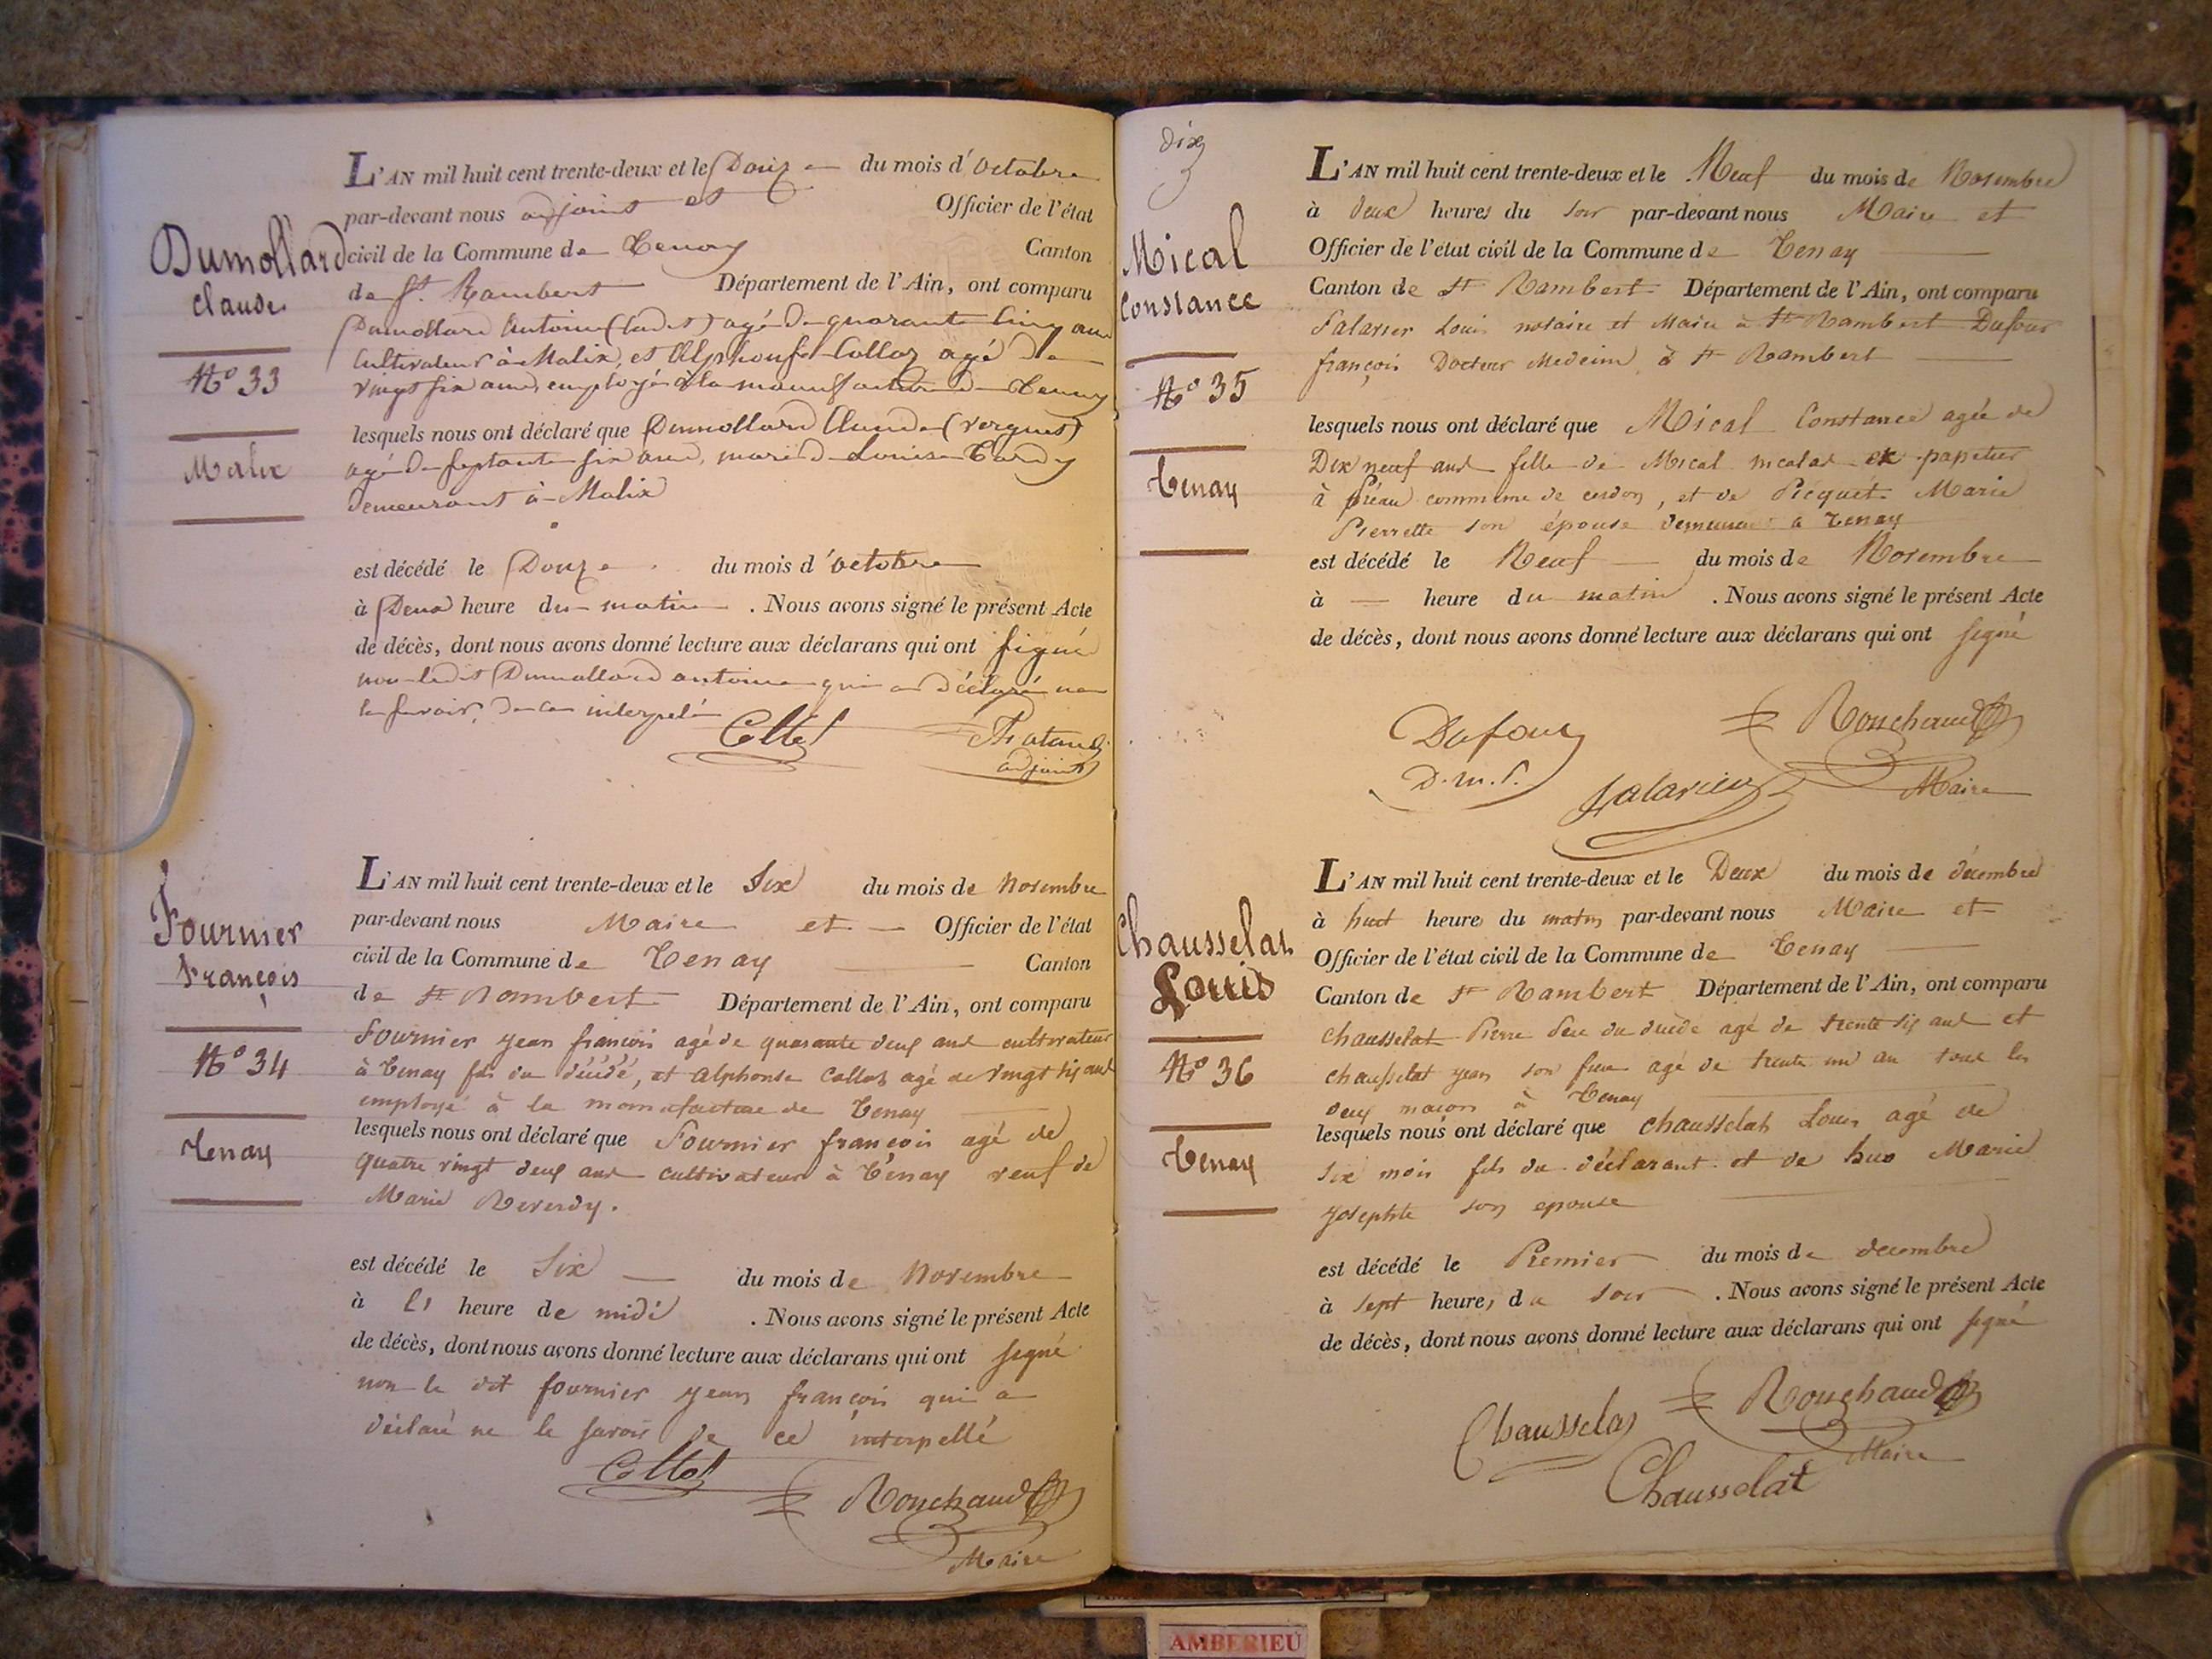 Dumollard
Claude
N° 33
Malix
L'AN mil huit cent trente-deux et le Douze du mois d'octobre
par-devant nous adjoint et Officier de l'état
civil de la Commune de Tenay Canton
de St. Rambert Département de l'Ain, ont comparu
Dumollard Antoine (cadet) agé de quarante cinq ans
cultivateur à Malix, et Alphonse Collot agé de
vingt six ans, employé à la manufacture de Tenay
lesquels nous ont déclaré que Dumollard Claude (vergnet)
agé de septante six ans, mari de Louise Tardy
demeurant à Malix
est décédé le Douze du mois d'octobre
à Deux heure du matin . Nous avons signé le présent Acte
de décès, dont nous avons donné lecture aux déclarans qui ont signé
non ledit Dumollard antoine qui a déclaré ne
le savoir, de ce interpelé
Collot
adjoint
Fournier
François
N° 34
Tenay
L'AN mil huit cent trente-deux et le Six du mois de Novembre
par-devant nous Maire et Officier de l'état
civil de la Commune de Tenay Canton
de St Rambert Département de l'Ain, ont comparu
Fournier jean françois agé de quarante deux ans cultivateur
à Tenay fils du décédé, et alphonse Collot agé de vingt six ans
employé à la manufacture de Tenay
lesquels nous ont déclaré que Fournier françois agé de
quatre vingt deux ans cultivateur à Tenay veuf de
Marie Reverdy.
est décédé le Six du mois de Novembre
à heure de midi . Nous avons signé le présent Acte
de décès, dont nous avons donné lecture aux déclarans qui ont signé
non le dit fournier jean françois qui a
déclaré ne le savoir de ce interpellé
Collot
Rouchaud
Maire
dix
Mical
Constance
N° 35
Tenay
L'AN mil huit cent trente-deux et le Neuf du mois de Novembre
à deux heures du soir par-devant nous Maire et
Officier de l'état civil de la Commune de Tenay
Canton de St Rambert Département de l'Ain, ont comparu
Salarier Louis notaire et Maire à St Rambert Dufour
françois Docteur Medecin à St Rambert
lesquels nous ont déclaré que Mical Constance agée de
Dix neuf ans fille de Mical nicolas ex papetier
à préau commune de cerdon, et de Picquet Marie
Pierrette son épouse demeurant a Tenay
est décédé le Neuf du mois de Novembre
à — heure du matin . Nous avons signé le présent Acte
de décès, dont nous avons donné lecture aux déclarans qui ont signé
Dufour
D.m.P.
Salarier
Rouchaud
Maire
Chausselat
Louis
N° 36
Tenay
L'AN mil huit cent trente-deux et le Deux du mois de décembre
à huit heures du matin par-devant nous Maire et
Officier de l'état civil de la Commune de Tenay
Canton de St Rambert Département de l'Ain, ont comparu
chausselat Pierre Pere du décédé agé de trente six ans et
chausselat jean son frere agé de trente un an tous les
deux maçons à Tenay
lesquels nous ont déclaré que chausselat Louis agé de
six mois fils du déclarant et de Marie
josephte son epouse
est décédé le Premier du mois de decembre
à sept heures du soir . Nous avons signé le présent Acte
de décès, dont nous avons donné lecture aux déclarans qui ont signé
Chausselat
Rouchaud
Maire
Chausselat
AMBERIEU